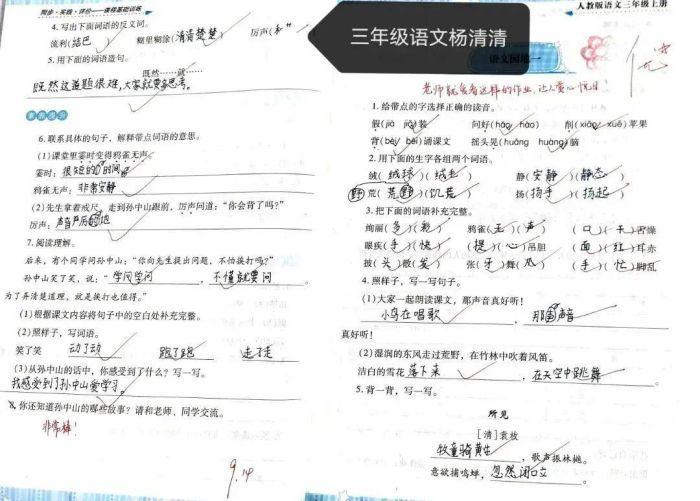 同步·实践·评价——课程基础训练
4. 写出下面词语的反义词。
流利(结巴) 糊里糊涂(清清楚楚) 厉声(和
5. 用下面的词语造句。
既然……就……
既然这道题很难,大家就要多思考。
6. 联系具体的句子，解释带点词语的意思。
(1)课堂里霎时变得鸦雀无声。
霎时：很短的时间
鸦雀无声：非常安静
(2)先生拿着戒尺，走到孙中山跟前，厉声问道：“你会背了吗？”
厉声：声音严厉的
7. 阅读理解。
后来，有个同学问孙中山：“你向先生提出问题，不怕挨打吗？”
孙中山笑了笑，说：“学问学问，不懂就要问
为了弄清楚道理，就是挨打也值得。”
(1)根据课文内容将句子中的空白处补充完整。
(2)照样子，写词语。
笑了笑 动了动 跑了跑 走了走
(3)从孙中山的话中，你感受到了什么？写一写。
我感受到了孙中山爱学习。
8. 你还知道孙中山的哪些故事？请和老师、同学交流。
非常棒！
9.14
三年级语文杨清清
人教版语文三年级上册
语文园地一
优
老师就爱看这样的作业,让人赏心悦目！
1. 给带点的字选择正确的读音。
假(jiǎ jià)装 问好(hǎo hào) 削(xiāo xuē)苹果
背(bēi bèi)诵课文 摇头晃(huàng huǎng)脑
2. 用下面的生字各组两个词语。
绒(绒球)(绒毛) 静(安静)(静态)
荒(荒野)(饥荒) 扬(扬手)(扬起)
野
3. 把下面的词语补充完整。
绚丽(多)(彩) 鸦雀(无)(声) (口)(干)舌燥
眼疾(手)(快) (提)(心)吊胆 (面)(红)耳赤
披(头)散(发) 张(牙)舞(爪) (手)(忙)脚乱
4. 照样子，写一写句子。
(1)大家一起朗读课文，那声音真好听！
小鸟在唱歌，那声音
真好听！
(2)湿润的东风走过荒野，在竹林中吹着风笛。
洁白的雪花落下来，在天空中跳舞
5. 背一背，写一写。
所见
[清]袁枚
牧童骑黄牛，歌声振林樾。
意欲捕鸣蝉，忽然闭口立